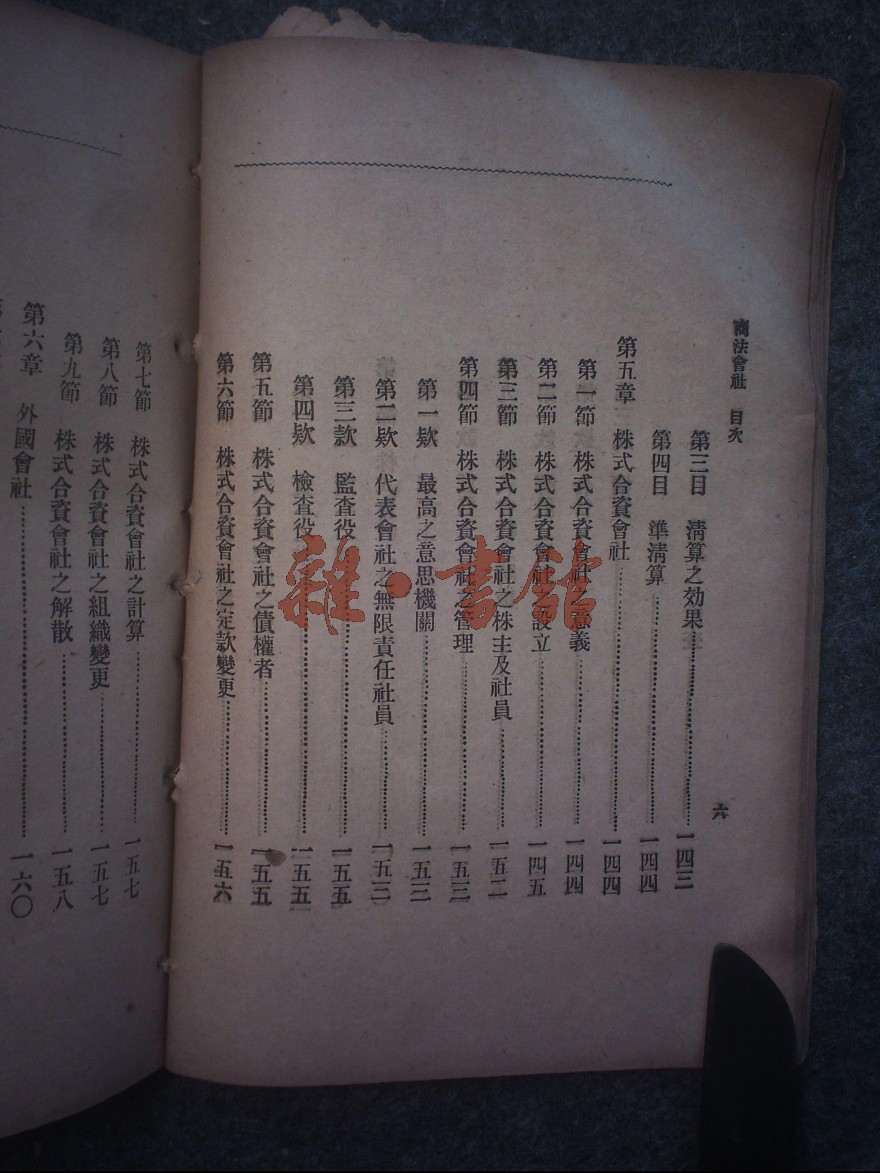 商法會社 目次
六
第三目 淸算之効果……一四三
第四目 準淸算……一四四
第五章 株式合資會社……一四四
第一節 株式合資會社之意義……一四四
第二節 株式合資會社之設立……一四五
第三節 株式合資會社之株主及社員……一五二
第四節 株式合資會社之管理……一五三
第一欵 最高之意思機關……一五三
第二欵 代表會社之無限責任社員……一五三
第三款 監査役……一五五
第四欵 檢査役……一五五
第五節 株式合資會社之債權者……一五五
第六節 株式合資會社之定款變更……一五六
第七節 株式合資會社之計算……一五七
第八節 株式合資會社之組織變更……一五七
第九節 株式合資會社之解散……一五八
第六章 外國會社……一六〇
雜·書館